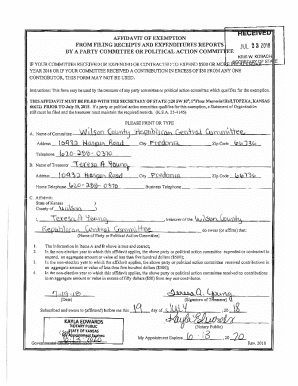 RECEIVED
JUL 23 2018
KRIS W. KOBACH
SECRETARY OF STATE
AFFIDAVIT OF EXEMPTION
FROM FILING RECEIPTS AND EXPENDITURES REPORTS
BY A PARTY COMMITTEE OR POLITICAL ACTION COMMITTEE
IF YOUR COMMITTEE RECEIVED OR EXPENDED OR CONTRACTED TO EXPEND $500 OR MORE
YEAR 2018 OR IF YOUR COMMITTEE RECEIVED A CONTRIBUTION IN EXCESS OF $50 FROM ANY ONE
CONTRIBUTOR, THIS FORM MAY NOT BE USED.
Instructions: This form may be used by the treasurer of any party or political action committee which qualifies for the exemption.
THIS AFFIDAVIT MUST BE FILED WITH THE SECRETARY OF STATE (120 SW 10th, 1st Floor Memorial Hall, TOPEKA, KANSAS
66612) PRIOR TO July 30, 2018. If a party or political action committee qualifies for this exemption, a Statement of Organization
still must be filed and the treasurer must maintain the required records. (K.S.A. 25-4145)
PLEASE PRINT OR TYPE
A. Name of Committee Wilson County Republican Central Committee
Address 10932 Harper Road City Fredonia Zip Code 66736
Telephone 620-288-0370
B. Name of Treasurer Teresa A Young
Address 10932 Harper Road City Fredonia Zip Code 66736
Home Telephone 620-288-0370 Business Telephone
C. Affidavit:
State of Kansas )
County of Wilson )
I, Teresa A Young, treasurer of the Wilson County
Republican Central Committee do swear (or affirm) that:
(Name of Party or Political Action Committee)
1. The information in Items A and B above is true and correct;
2. In the non-election year to which this affidavit applies, the above party or political action committee expended or contracted to
expend, an aggregate amount or value of less than five hundred dollars ($500);
3. In the non-election year to which this affidavit applies, the above party or political action committee received contributions
in an aggregate amount or value of less than five hundred dollars ($500);
4. In the non-election year to which this affidavit applies, the above party or political action committee received no contributions
in an aggregate amount or value in excess of fifty dollars ($50) from any one contributor.
7-19-18 Teresa A. Young
(Date) (Signature of Treasurer)
Subscribed and sworn to (affirmed) before me this 19 day of July 2018
Kayla Edwards
(Notary Public)
KAYLA EDWARDS
NOTARY PUBLIC
STATE OF KANSAS
My Appointment Expires 10-13 2020
Rev. 2018